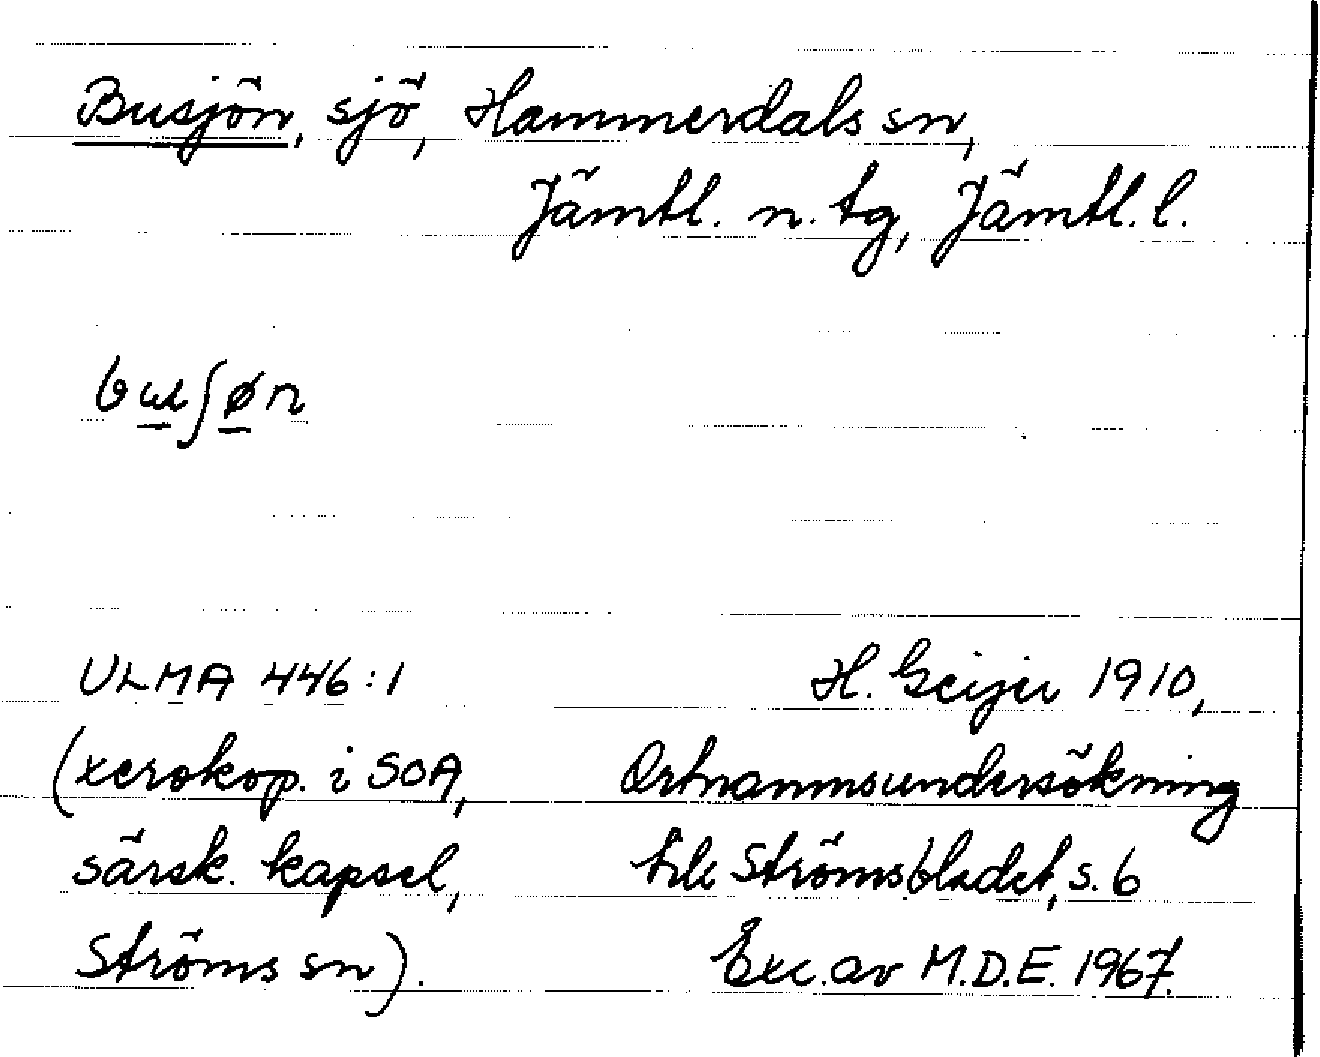 Busjön, sjö, Hammerdals sn,
Jämtl. n. tg, Jämtl. l.
bɯʃøn
ULMA 446:1
(xerokop. i SOA,
särsk. kapsel,
Ströms sn).
H. Geijer 1910,
Ortnamnsundersökning
till Strömsbladet, s. 6
Exc. av M.D.E. 1967.